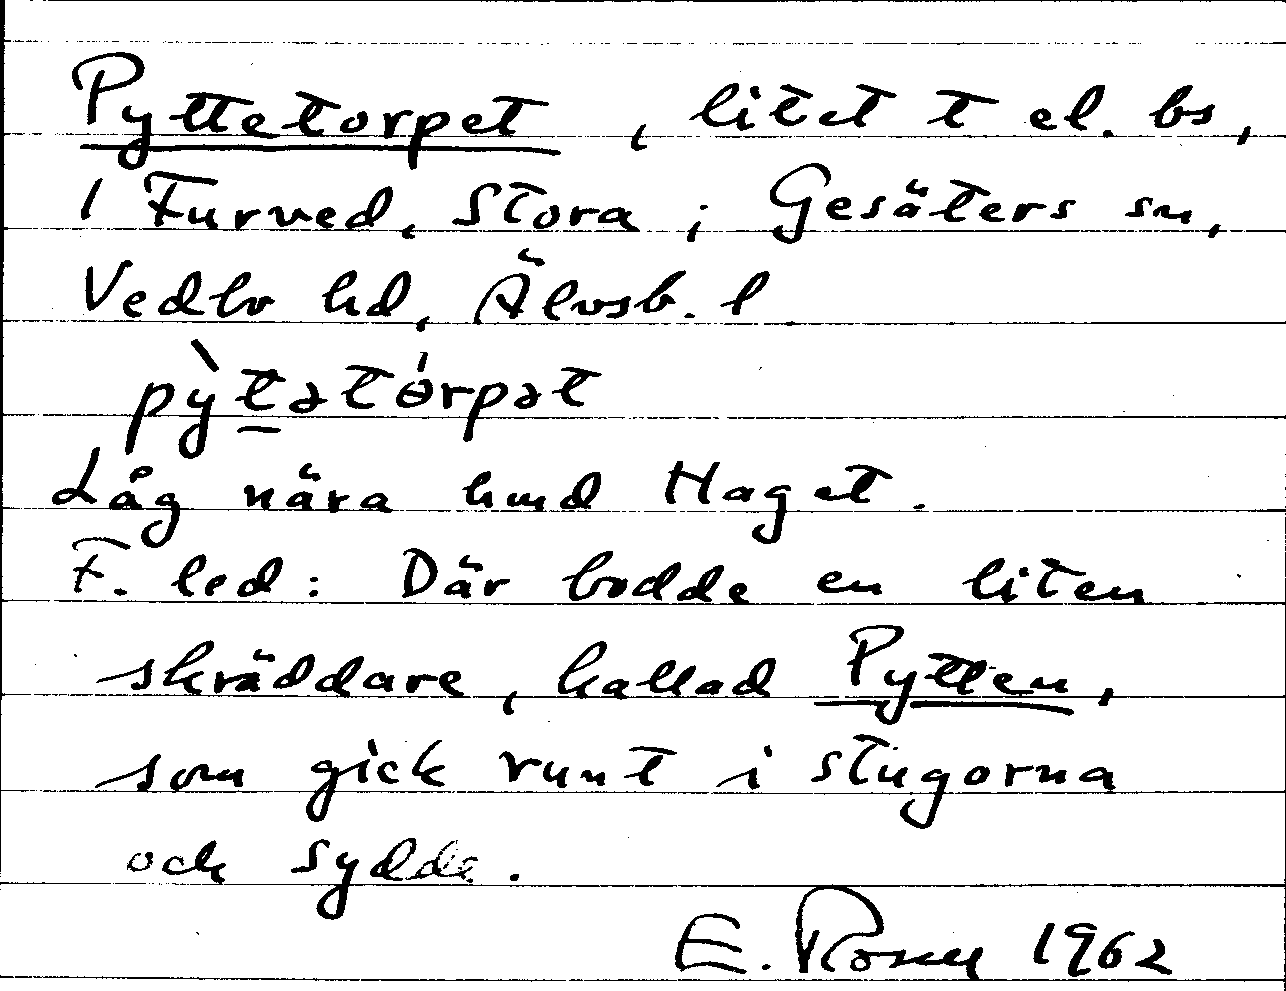 Pyttetorpet, litet t el. bs,
1 Furved, Stora; Gesäters sn,
Vedbo hd, Älvsb. l
pỳt̲ətórpət
Låg nära hmd Haget.
F. led: Där bodde en liten
skräddare, kallad Pytten,
som gick runt i stugorna
och sydde.
E. Rosell 1962